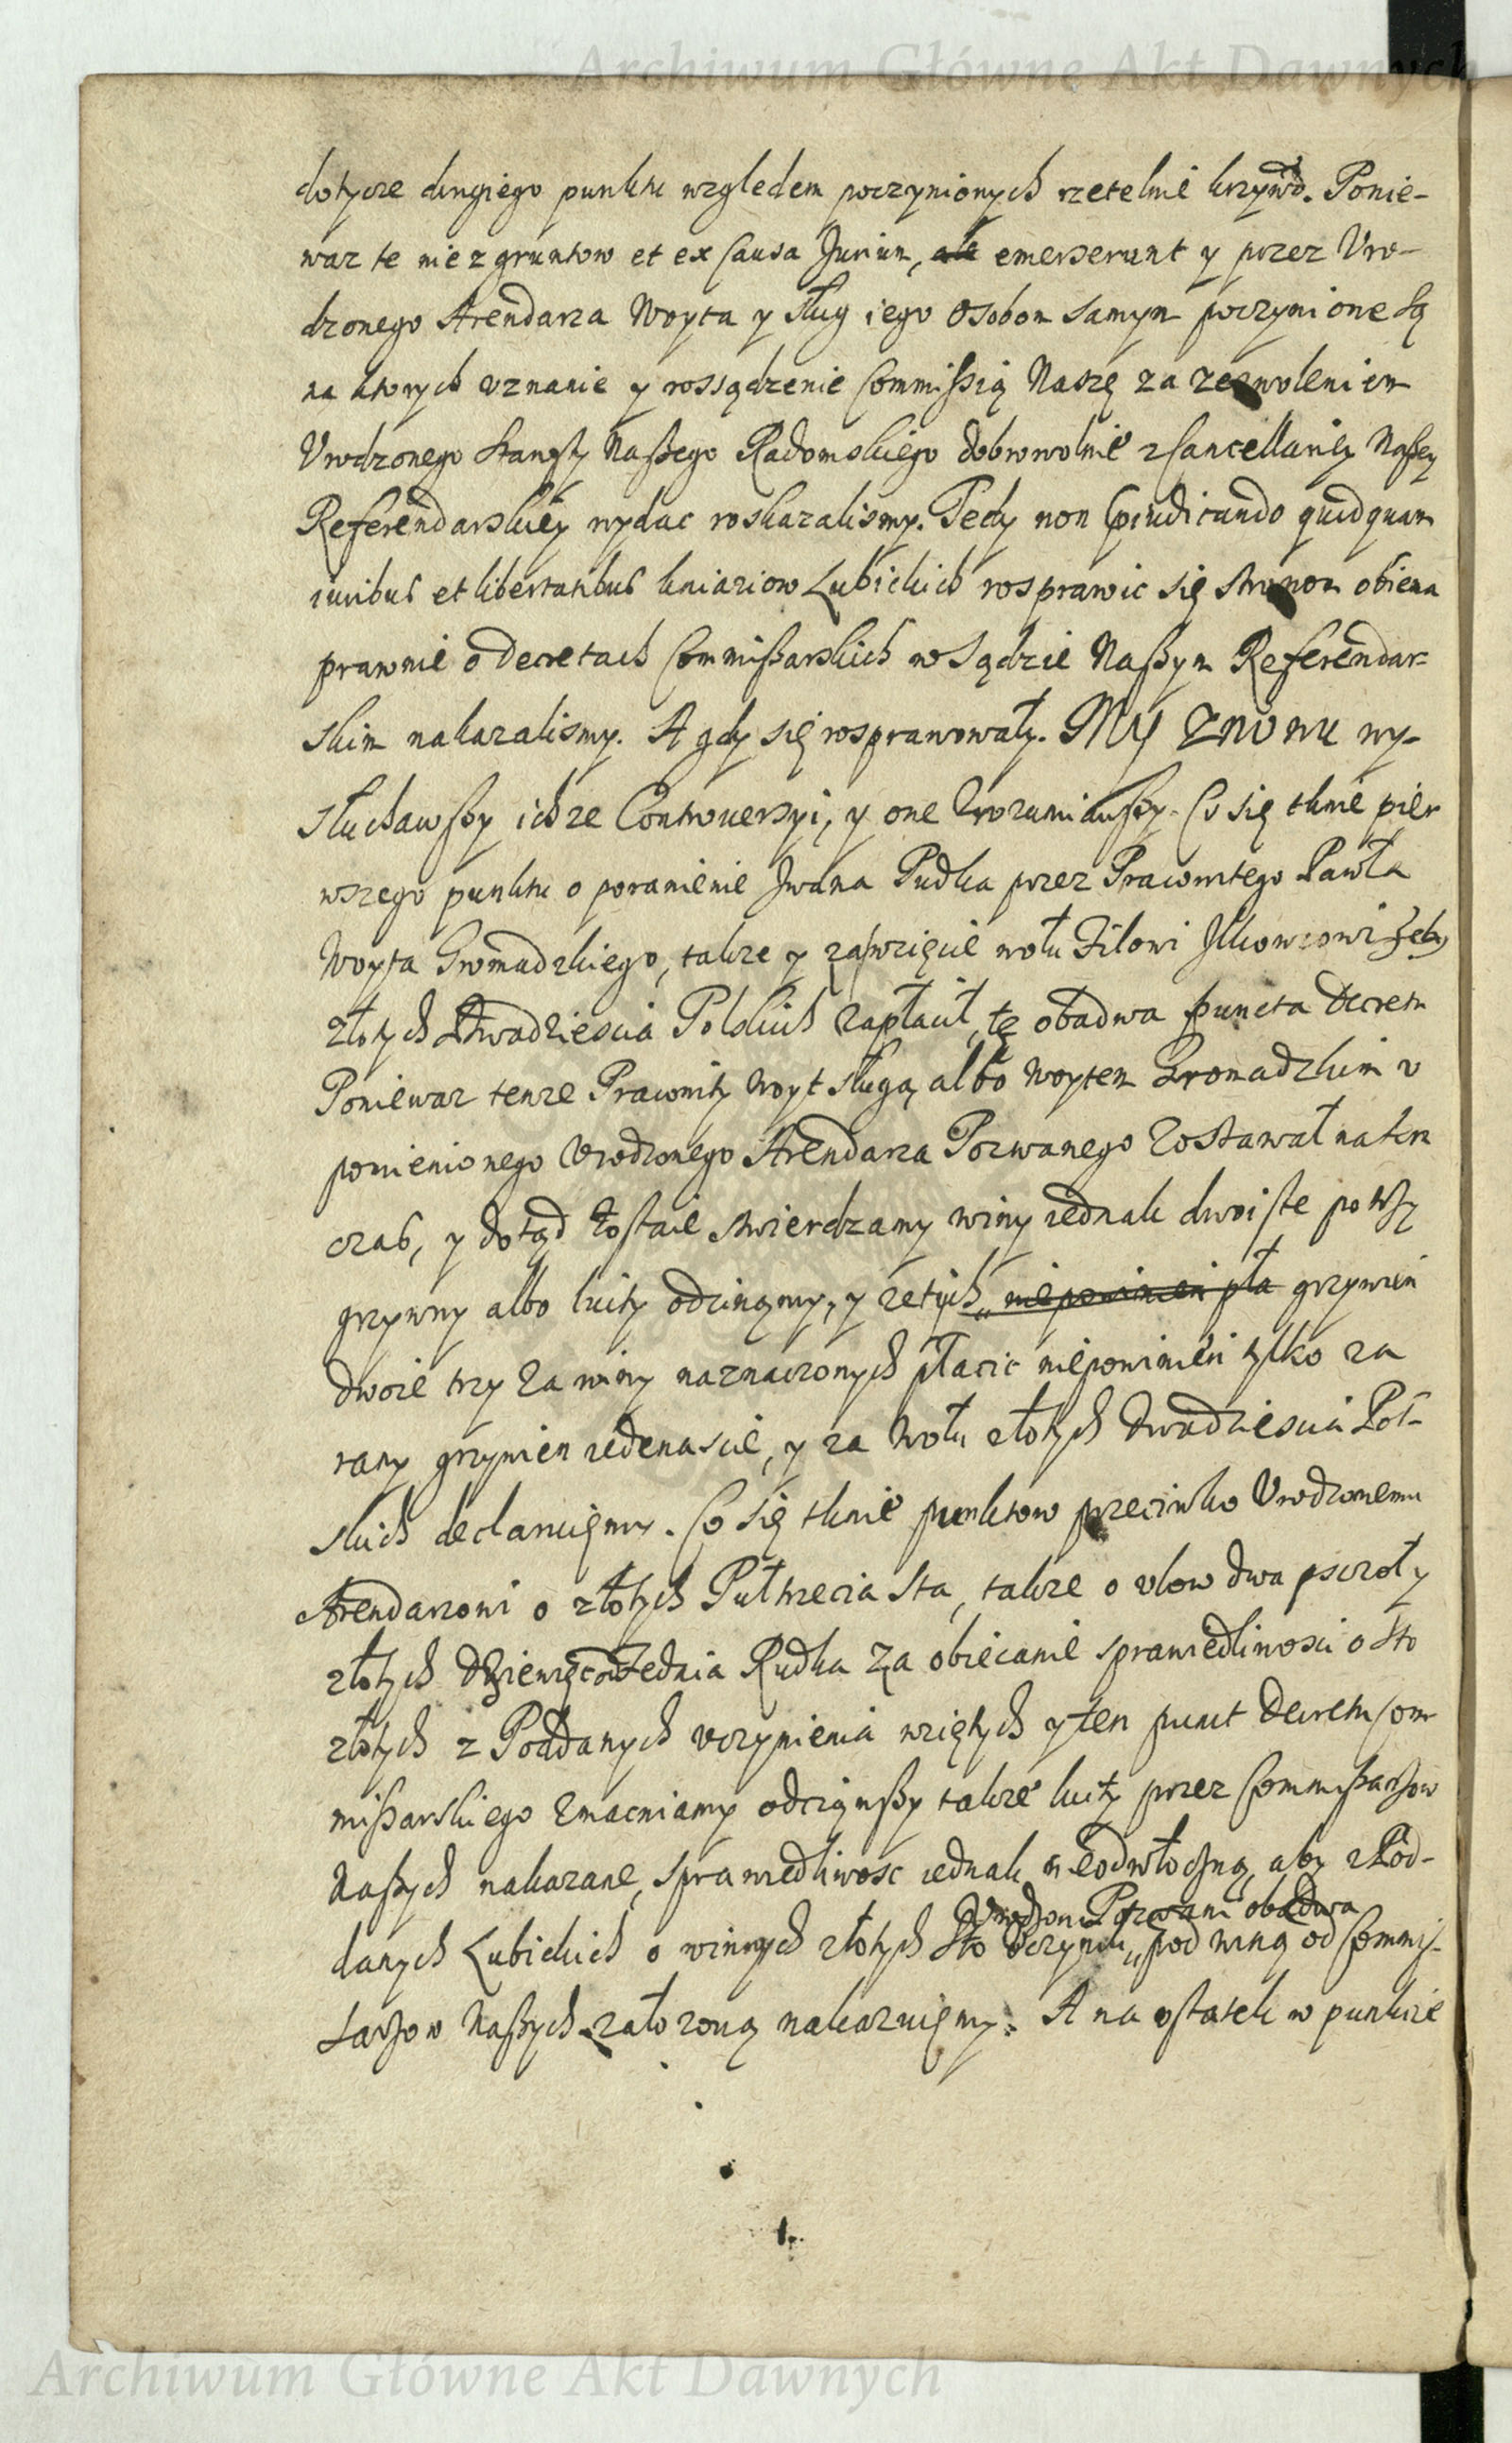 Archiwum Główne Akt Dawnych
dotycze drugiego punktu względem poczynionych rzetelnie krzywd. Ponie-
waz te nie z gruntow et ex Causa Jurium, ale emerserunt y przez Vro-
dzonego Arendarza Woyta y sług iego osobom samym poczynione są
na ktorych vznanie y rossądzenie Commissią Naszę za zezwoleniem
Vrodzonego Starosty Naszego Radomskiego dobrowolnie z Cancellariey Naszey
Referendarskiey wydac roskazalismy. Tedy non praeiudicando quidquam
iuribus et libertatibus kniaziow Lubickich rosprawic się stronom obiema
prawnie o decretach Commissarskich w Sądzie Naszym Referendar-
skim nakazalismy. A gdy się rosprawowały. My znowu wy-
słuchawszy ichze Controuersyi, y one zrozumiawszy. Co się tknie pier
wszego punktu o poranienie Jwana Pudka przez Pracowitego Pawła
Woyta Gromadzkiego, takze y zawzięcie wołu Filowi Jlkowzowi zeby
złotych Dwadziescia Polskich zapłacił, te obadwa puncta Decretu
Poniewaz tenze Pracowity Woyt sługą albo Woytem Gromadzkim v
pomienionego Vrodzonego Arendarza Pozwanego zostawał na ten
czas, y dotąd zostaie stwierdzamy winy iednak dwoiste po trzy
grzywny albo kuity odcinamy, y zetych niepowinien pła grzywien
dwoie trzy za winy naznaczonych płacic niepowinien tylko za
rany grzywien iedenascie, y za Wołu złotych Dwadziescia Pol-
skich declaruiemy. Co się tknie punktow przeciwko Vrodzonemu
Arendarzowi o złotych Pułtrzecia Sta, takze o vlow dwa pszczoły
złotych Dziewięc od Fednia Rudka za obiecanie sprawiedliwosci o sto
złotych z Poddanych vczynienia wziętych y ten punct Decretu Com
missarskiego zmacniamy odciąwszy takze kuity przez Commissarzow
Naszych nakazane, sprawiedliwosc iednak nieodwłoczną, aby z Pod-
Vrodzoni Pozwani obadwa
danych Lubickich o winnych złotych Sto vczynili, pod winą od Commis-
sarzow Naszych załozoną nakazuiemy. A na ostatek w punkcie
Archiwum Główne Akt Dawnych